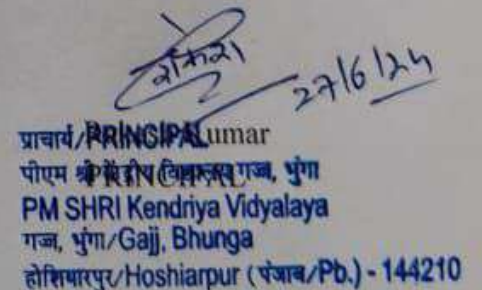 27/6/24
प्राचार्य/PRINCIPAL umar
पीएम श्री केंद्रीय विद्यालय गज्ज, भुंगा
PRINCIPAL
PM SHRI Kendriya Vidyalaya
गज्ज, भुंगा/Gajj, Bhunga
होशियारपुर/Hoshiarpur (पंजाब/Pb.) - 144210